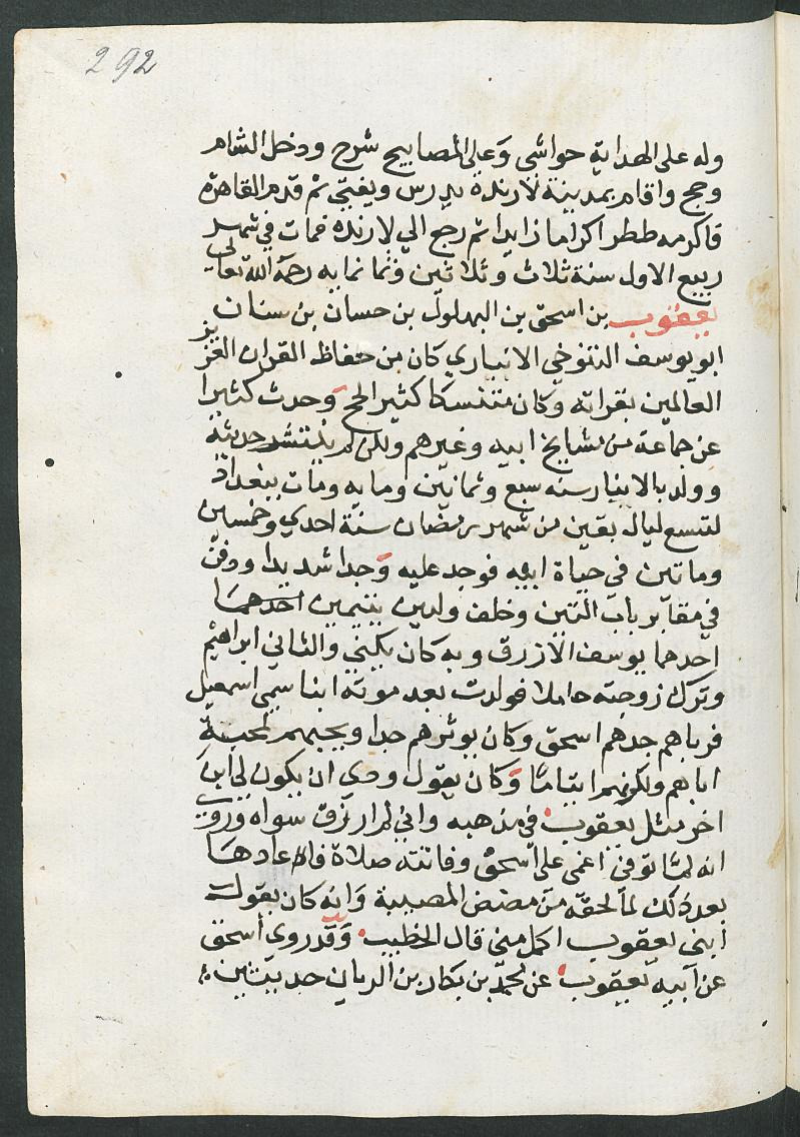 292
وله على الهداية حواشى وعلي المصابيح شرح ودخل الشام
وحج واقام بمدينة لارنده يدرس ويفتي ثم قدم القاهرة
فاكرمه ططر اكراما زايدا ثم رجع الي لارنده فمات في شهر
ربيع الاول سنة ثلاث وثلاثين وثمانمايه رحمه الله تعالى
يعقوب بن اسحق بن البهلول بن حسان بن سنان
ابو يوسف التنوخي الانباري كان من حفاظ القران العزيز
العالمين بقراته وكان متنسكا كثير الحج وحدث كثيرا
عن جماعة من مشايخ ابيه وغيرهم ولكن لم ينتشر حديثه
وولد بالانبار سنه سبع وثمانين ومايه ومات ببغداد
لتسع ليال بقين من شهر رمضان سنة احدي وخمسين
وماتين في حياة ابيه فوجد عليه وجدا شديدا ودفن
في مقابر باب التين وخلف ولدين يتيمين احدهما
احدهما يوسف الازرق وبه كان يكني والثاني ابراهيم
وترك زوجته حاملا فولدت بعد موته ابنا سمي اسمعيل
فرباهم جدهم اسحق وكان يوثرهم جدا ويحبهم لمحبة
اباهم ولكونهم ايتاما وكان يقول ودي ان يكون لي ابن
اخر مثل يعقوب في مذهبه واني لم ارزق سواه وروي
انه لما توفي اغمى على اسحق وفاتته صلاة فاعادها
بعد ذلك لما لحقه من مضض المصيبة وانه كان يقول
ابنى يعقوب اكمل مني قال الخطيب وقد روى اسحق
عن ابيه يعقوب عن محمد بن بكار بن الريان حديثين